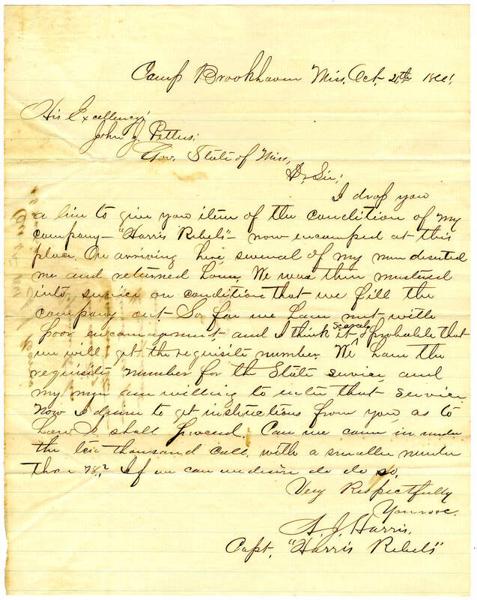 Camp Brookhaven Miss, Oct. 28th 1861
His Excellency,
John J Pettus.
Gov. State of Miss,
D. Sir;
I drop you
a line to give you item of the condition of my
company - "Harris Rebels" - now encamped at this
place. On arriving here several of my men deserted
me and returned home. We was then mustered
into service on conditions that we fill the
company out. So far we have met with
poor encouragement, and I think it scarcely probable that
we will get the requisite number. We have the
requisite number for the State service, and
my men are willing to enter that service.
Now I desire to get instructions from you as to
how I shall proceed. Can we come in under
the ten thousand call, with a smaller number
than 78? If we can we desire to do so.
Very Respectfully
Yours
A. J. Harris.
Capt. "Harris Rebels"